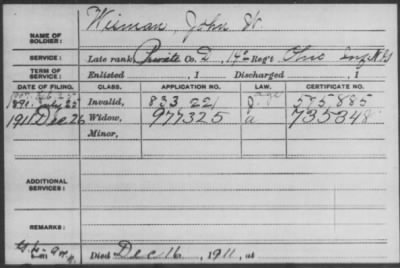 NAME OF SOLDIER: Wisman, John W.
SERVICE: Late rank, Private Co. D, Reg't Inf
TERM OF SERVICE: Enlisted , 1 Discharged , 1
DATE OF FILING. CLASS. APPLICATION NO. LAW. CERTIFICATE NO.
July 25 Invalid, 833 221 585.885
1911 Dec. 26 Widow, 977325 a 735348
Minor,
ADDITIONAL SERVICES:
REMARKS:
Died Dec 16, 1911, at